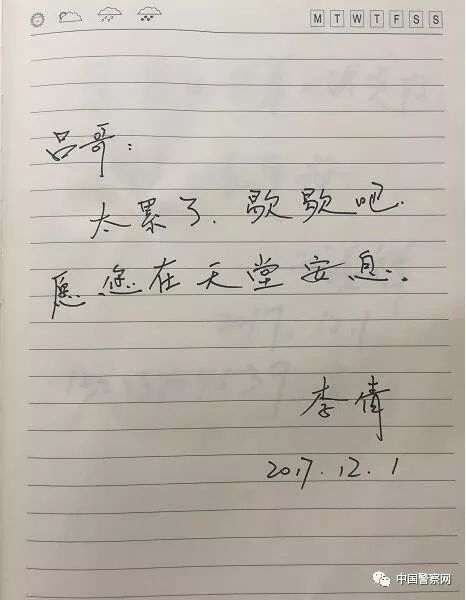 M T W T F S S
吕哥：
太累了.歇歇吧.
愿您在天堂安息.
李倩
2017.12.1
中国警察网